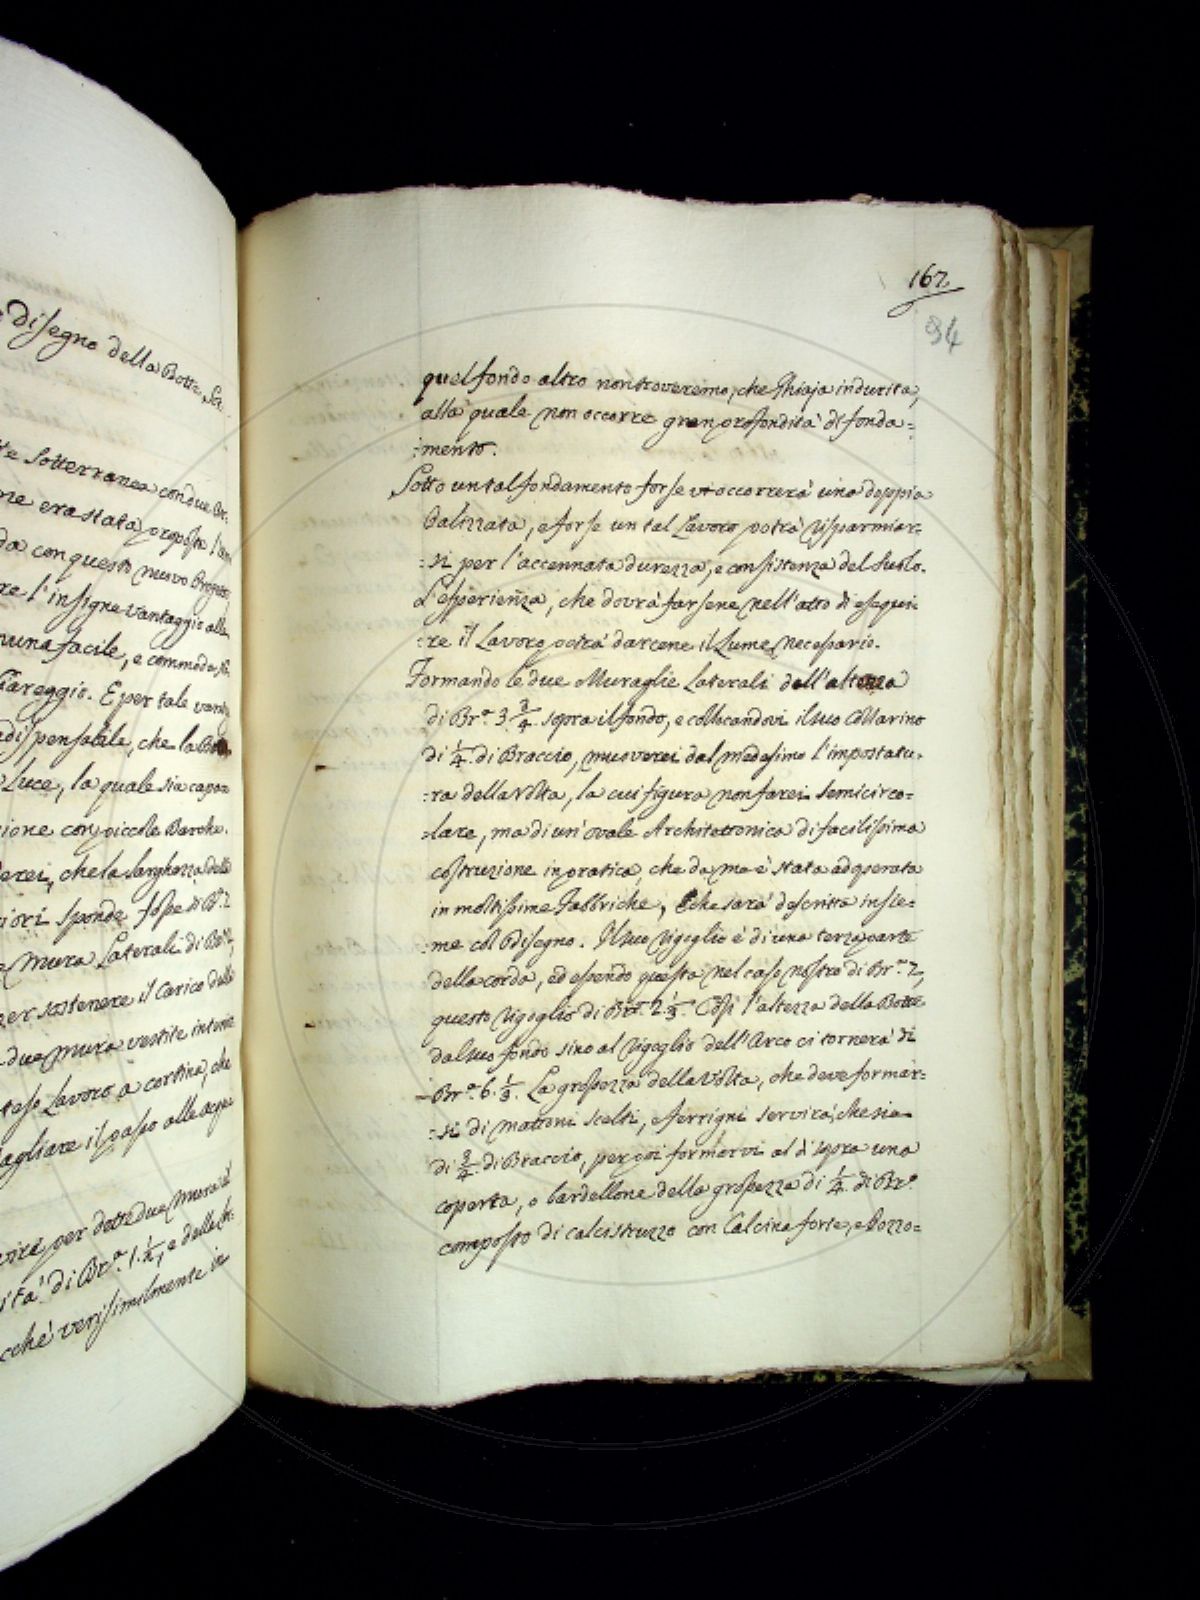 Disegno della Botte
sotterranea con due
era stata proposta
con questo nuovo
l'insigne vantaggio
una facile, e commoda
E per tale
indispensabile, che la
Luce, la quale sia capa
con piccole Barche.
che la larghezza
sponde fosse di
Mura Laterali di
per sostenere il carico
due mura vestite
Lavoro a cortina, che
tagliare il passo alle
per dette due Mura
di Br.ᵃ 1. ½, e della
verisimilmente in
162
94
quel fondo altro non troveremo, che Ghiaja indurita,
alla quale non occorre gran profondità di fonda=
:mento.
Sotto un tal fondamento forse vi occorrerà una doppia
Palizzata, e forse un tal Lavoro potrà risparmiar=
:si per l'accennata durezza, e consistenza del suolo.
L'esperienza, che dovrà farsene nell'atto di esegui=
:re il Lavoro potrà darcene il Lume necessario.
Formando le due Muraglie Laterali dall'altezza
di Br.ᵃ 3 ¾ sopra il fondo, e collocandovi il suo Collarino
di ¼ di Braccio, muoverei dal medesimo l'impostatu=
:ra della volta, la cui figura non farei semicirco=
:lare, ma di un'ovale Architettonica di facilissima
costruzione in pratica, che da me è stata adoperata
in moltissime Fabbriche, che sarà descritta insie=
:me col Disegno. Il suo rigoglio è di una terza parte
della corda, ed essendo questa nel caso nostro di Br.ᵃ 7,
questo rigoglio di Br.ᵃ 2 ⅓. Così l'altezza della Botte
dal suo fondo sino al rigoglio dell'Arco ci tornerà di
Br.ᵃ 6. ⅓. La grossezza della Volta, che deve formar=
:si di mattoni scelti, e ferrigni servirà, che sia
di ¾ di Braccio, per poi formarvi al di sopra una
coperta, o lardellone della grossezza di ¼ di Br.ᵒ
composto di calcistruzzo con Calcina forte, e Pozzo=